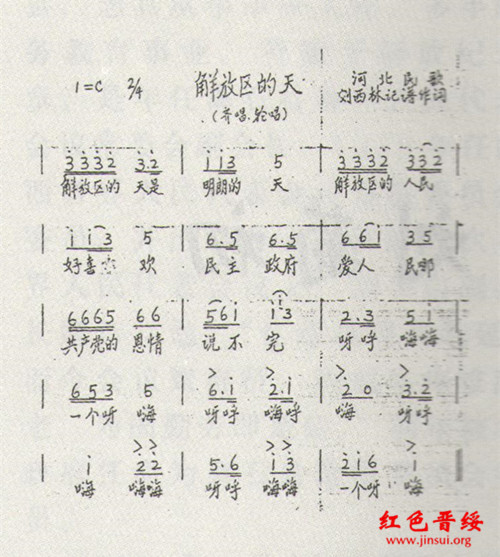 1=C 2/4 解放区的天 河北民歌
(齐唱.轮唱) 刘西林记谱作词
3 3 3 2 3.2 | 1 1 3 5 | 3 3 3 2 3 3 2 |
解放区的 天是 明朗的 天 解放区的 人民
1 1 3 5 | 6.5 6.5 | 6 6 1 3 5 |
好喜欢 民主 政府 爱人 民那
6 6 6 5 6 6 | 5 6 1 1 3 | 2.3 5 1 |
共产党的 恩情 说不 完 呀呼 嗨嗨
6 5 3 5 | 6.1 2.1 | 2 0 3.2 |
一个呀 嗨 呀呼 嗨呼 嗨 呀呼
1 2 2 | 5.6 1 3 | 2 1 6 1 |
嗨 嗨嗨 呀呼 嗨嗨 一个呀 嗨
红色晋绥
www.jinsui.org